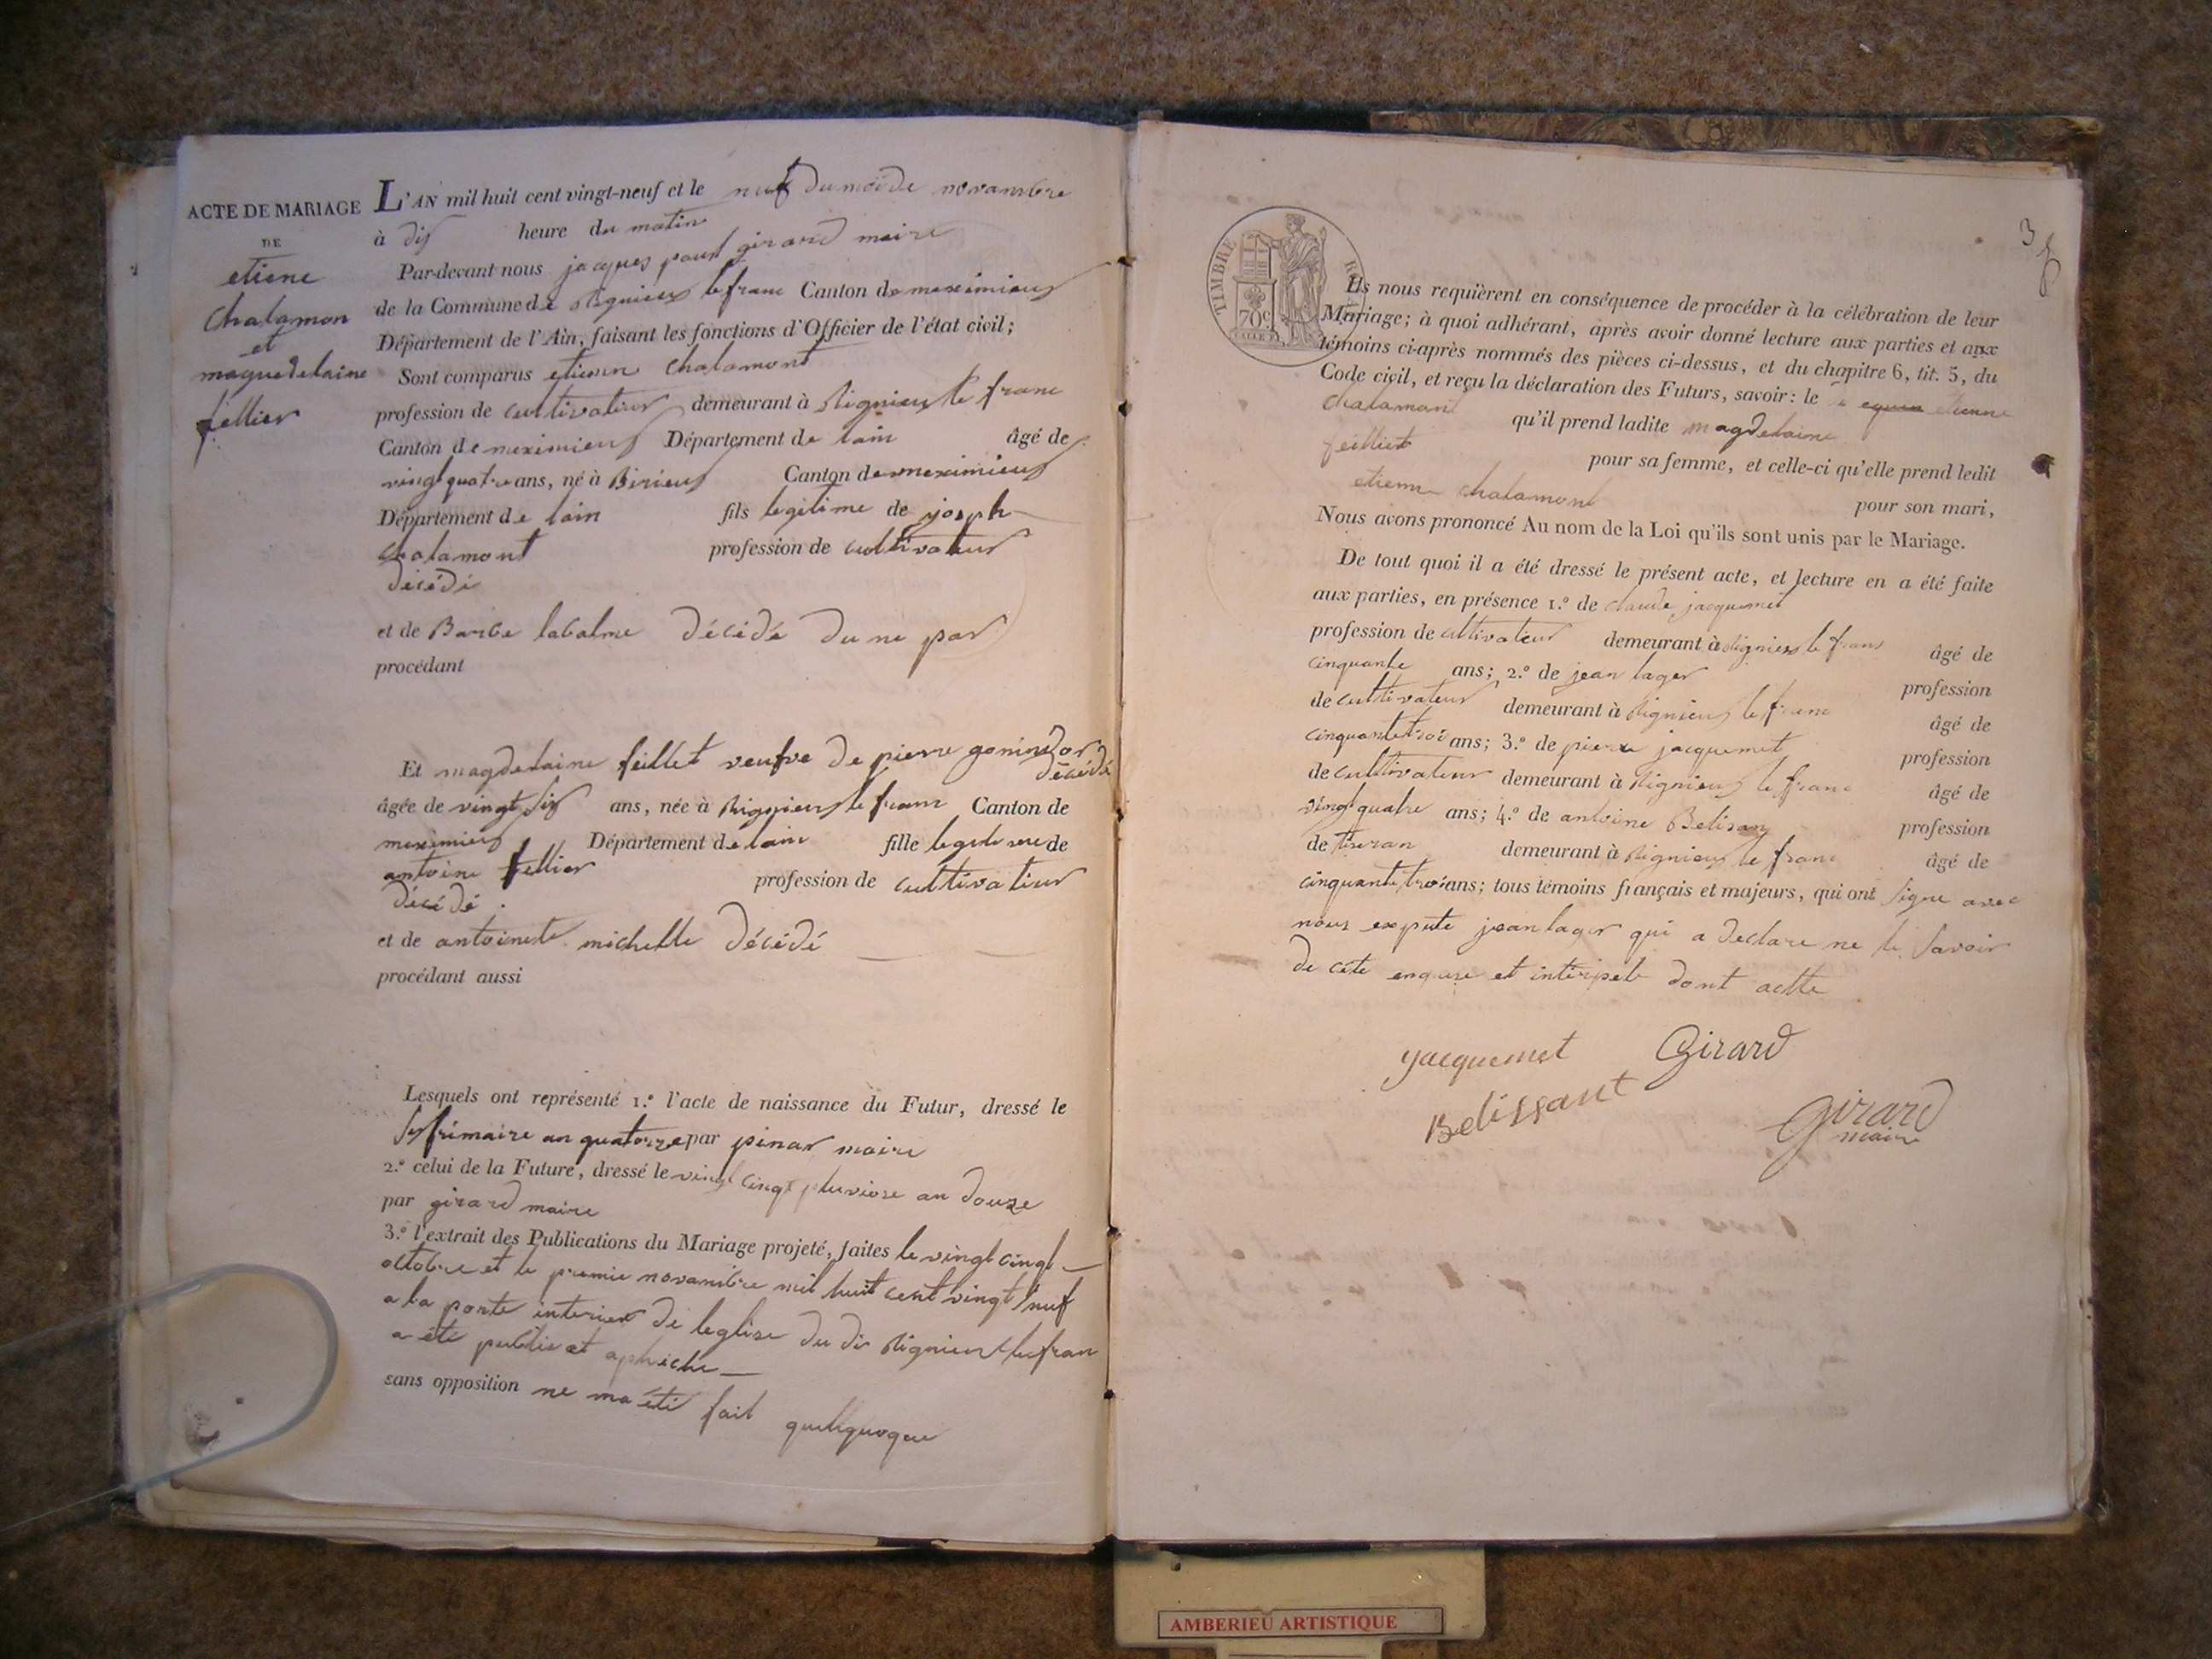 ACTE DE MARIAGE
DE
etiene
Chalamon
et
maguedelaine
fellier
L'AN mil huit cent vingt-neuf et le neuf du moi de novambre
à dis heure du matin
Par-devant nous jacques girard maire
de la Commune de Rignieux le franc Canton de meximieux
Département de l'Ain, faisant les fonctions d'Officier de l'état civil;
Sont comparus etienn chalamont
profession de cultivateur demeurant à Rignieux le franc
Canton de meximieux Département de lain âgé de
vingt quatre ans, né à Birieux Canton de meximieux
Département de lain fils legitime de joseph
chalamont profession de cultivateur
décédé
et de Barbe labalme décédé du ne par
procédant
Et magdelaine feillet veufve de pierre gonindor
décédé
âgée de vingt six ans, née à Rignieux le franc Canton de
meximieux Département de lain fille legitime de
antoine fellier profession de cultivateur
décédé
et de antoinete michelle décédé
procédant aussi
Lesquels ont représenté 1.º l'acte de naissance du Futur, dressé le
six frimaire an quatorze par pinar maire
2.º celui de la Future, dressé le vingt cinq pluviose an douze
par girard maire
3.º l'extrait des Publications du Mariage projeté, faites le vingt cinqt
octobre et le premie novambre mil huit cent vingt neuf
a la porte interieur de leglise du di Rignieux le fran
a été publie et aphiche
sans opposition ne ma été fait quelquoque
TIMBRE ROYAL
70c
3
Ils nous requièrent en conséquence de procéder à la célébration de leur
Mariage; à quoi adhérant, après avoir donné lecture aux parties et aux
témoins ci-après nommés des pièces ci-dessus, et du chapitre 6, tit. 5, du
Code civil, et reçu la déclaration des Futurs, savoir: le etienne
chalamont qu'il prend ladite magdelaine
feilliet pour sa femme, et celle-ci qu'elle prend ledit
etienne chalamont pour son mari,
Nous avons prononcé Au nom de la Loi qu'ils sont unis par le Mariage.
De tout quoi il a été dressé le présent acte, et lecture en a été faite
aux parties, en présence 1.º de claude jacquemet
profession de cultivateur demeurant à Rignieux le franc âgé de
cinquante ans; 2.º de jean lager profession
de cultivateur demeurant à Rignieux le franc âgé de
cinquante troi ans; 3.º de pierre jacquemet profession
de cultivateur demeurant à Rignieux le franc âgé de
vingt quatre ans; 4.º de antoine Belisan profession
de tiseran demeurant à Rignieux le franc âgé de
cinquante troi ans; tous témoins français et majeurs, qui ont signe avec
nous expete jean lager qui a declare ne le savoir
de cete enquise et interpele dont actte
Jacquemet Girard
Belissant
girard
maire
AMBERIEU ARTISTIQUE